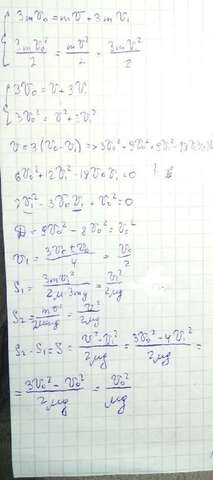 3mv₀ = mv + 3mv₁
3mv₀²/2 = mv²/2 + 3mv₁²/2
3v₀ = v + 3v₁
3v₀² = v² + 3v₁²
v = 3(v₀ - v₁) => 3v₀² = 9v₀² + 9v₁² - 18v₀v₁
6v₀² + 12v₁² - 18v₀v₁ = 0 | :6
2v₁² - 3v₀v₁ + v₀² = 0
D = 9v₀² - 8v₀² = v₀²
v₁ = (3v₀ ± v₀)/4 = v₀/2
S₁ = 3mv₁²/(2μ·3mg) = v₁²/(2μg)
S₂ = mv²/(2μmg) = v²/(2μg)
S₂ - S₁ = S = (v² - v₁²)/(2μg) = (3v₀² - 4v₁²)/(2μg) =
= (3v₀² - v₀²)/(2μg) = v₀²/(μg)